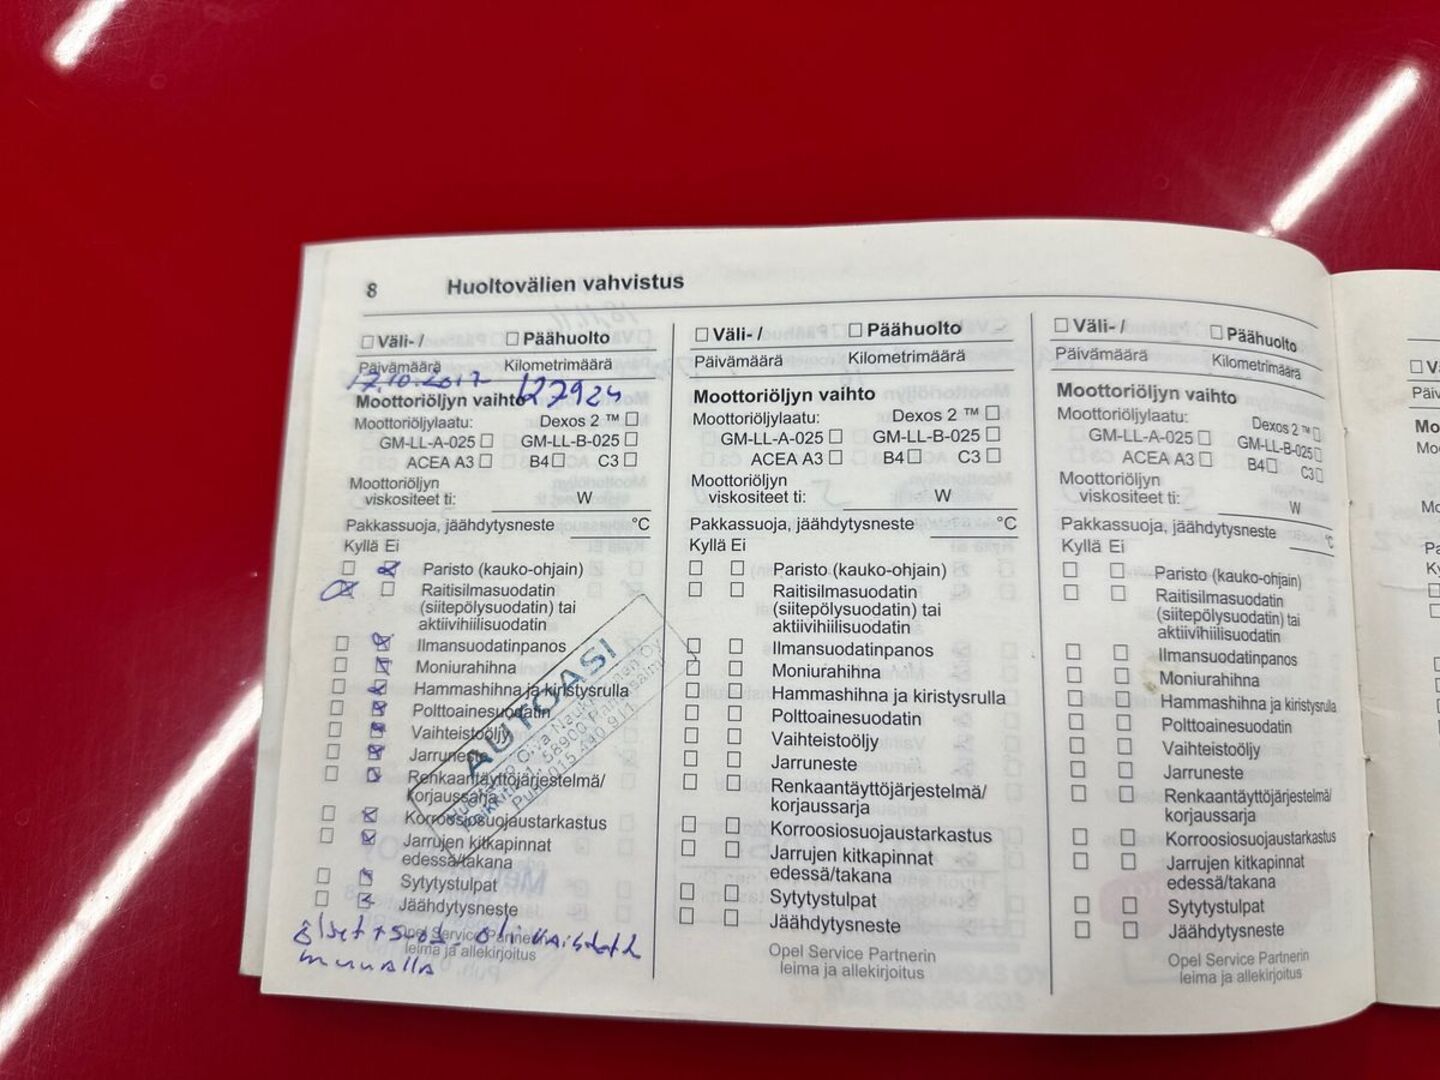 8 Huoltovälien vahvistus
☐ Väli- / ☐ Päähuolto
Päivämäärä Kilometrimäärä
17.10.2017 127924
Moottoriöljyn vaihto
Moottoriöljylaatu: Dexos 2 ™ ☐
GM-LL-A-025 ☐ GM-LL-B-025 ☐
ACEA A3 ☐ B4 ☐ C3 ☐
Moottoriöljyn
viskositeet ti: W
Pakkassuoja, jäähdytysneste °C
Kyllä Ei
☐ ☒ Paristo (kauko-ohjain)
☒ ☐ Raitisilmasuodatin
(siitepölysuodatin) tai
aktiivihiilisuodatin
☐ ☒ Ilmansuodatinpanos
☐ ☒ Moniurahihna
☐ ☒ Hammashihna ja kiristysrulla
☐ ☒ Polttoainesuodatin
☐ ☒ Vaihteistoöljy
☐ ☒ Jarruneste
☐ ☒ Renkaantäyttöjärjestelmä/
korjaussarja
☐ ☒ Korroosiosuojaustarkastus
☐ ☒ Jarrujen kitkapinnat
edessä/takana
☐ ☒ Sytytystulpat
☐ ☒ Jäähdytysneste
Opel Service Partnerin
leima ja allekirjoitus
muualla
AUTOASI
☐ Väli- / ☐ Päähuolto
Päivämäärä Kilometrimäärä
Moottoriöljyn vaihto
Moottoriöljylaatu: Dexos 2 ™ ☐
GM-LL-A-025 ☐ GM-LL-B-025 ☐
ACEA A3 ☐ B4 ☐ C3 ☐
Moottoriöljyn
viskositeet ti: W
Pakkassuoja, jäähdytysneste °C
Kyllä Ei
☐ ☐ Paristo (kauko-ohjain)
☐ ☐ Raitisilmasuodatin
(siitepölysuodatin) tai
aktiivihiilisuodatin
☐ ☐ Ilmansuodatinpanos
☐ ☐ Moniurahihna
☐ ☐ Hammashihna ja kiristysrulla
☐ ☐ Polttoainesuodatin
☐ ☐ Vaihteistoöljy
☐ ☐ Jarruneste
☐ ☐ Renkaantäyttöjärjestelmä/
korjaussarja
☐ ☐ Korroosiosuojaustarkastus
☐ ☐ Jarrujen kitkapinnat
edessä/takana
☐ ☐ Sytytystulpat
☐ ☐ Jäähdytysneste
Opel Service Partnerin
leima ja allekirjoitus
☐ Väli- / ☐ Päähuolto
Päivämäärä Kilometrimäärä
Moottoriöljyn vaihto
Moottoriöljylaatu: Dexos 2 ™ ☐
GM-LL-A-025 ☐ GM-LL-B-025 ☐
ACEA A3 ☐ B4 ☐ C3 ☐
Moottoriöljyn
viskositeet ti: W
Pakkassuoja, jäähdytysneste °C
Kyllä Ei
☐ ☐ Paristo (kauko-ohjain)
☐ ☐ Raitisilmasuodatin
(siitepölysuodatin) tai
aktiivihiilisuodatin
☐ ☐ Ilmansuodatinpanos
☐ ☐ Moniurahihna
☐ ☐ Hammashihna ja kiristysrulla
☐ ☐ Polttoainesuodatin
☐ ☐ Vaihteistoöljy
☐ ☐ Jarruneste
☐ ☐ Renkaantäyttöjärjestelmä/
korjaussarja
☐ ☐ Korroosiosuojaustarkastus
☐ ☐ Jarrujen kitkapinnat
edessä/takana
☐ ☐ Sytytystulpat
☐ ☐ Jäähdytysneste
Opel Service Partnerin
leima ja allekirjoitus